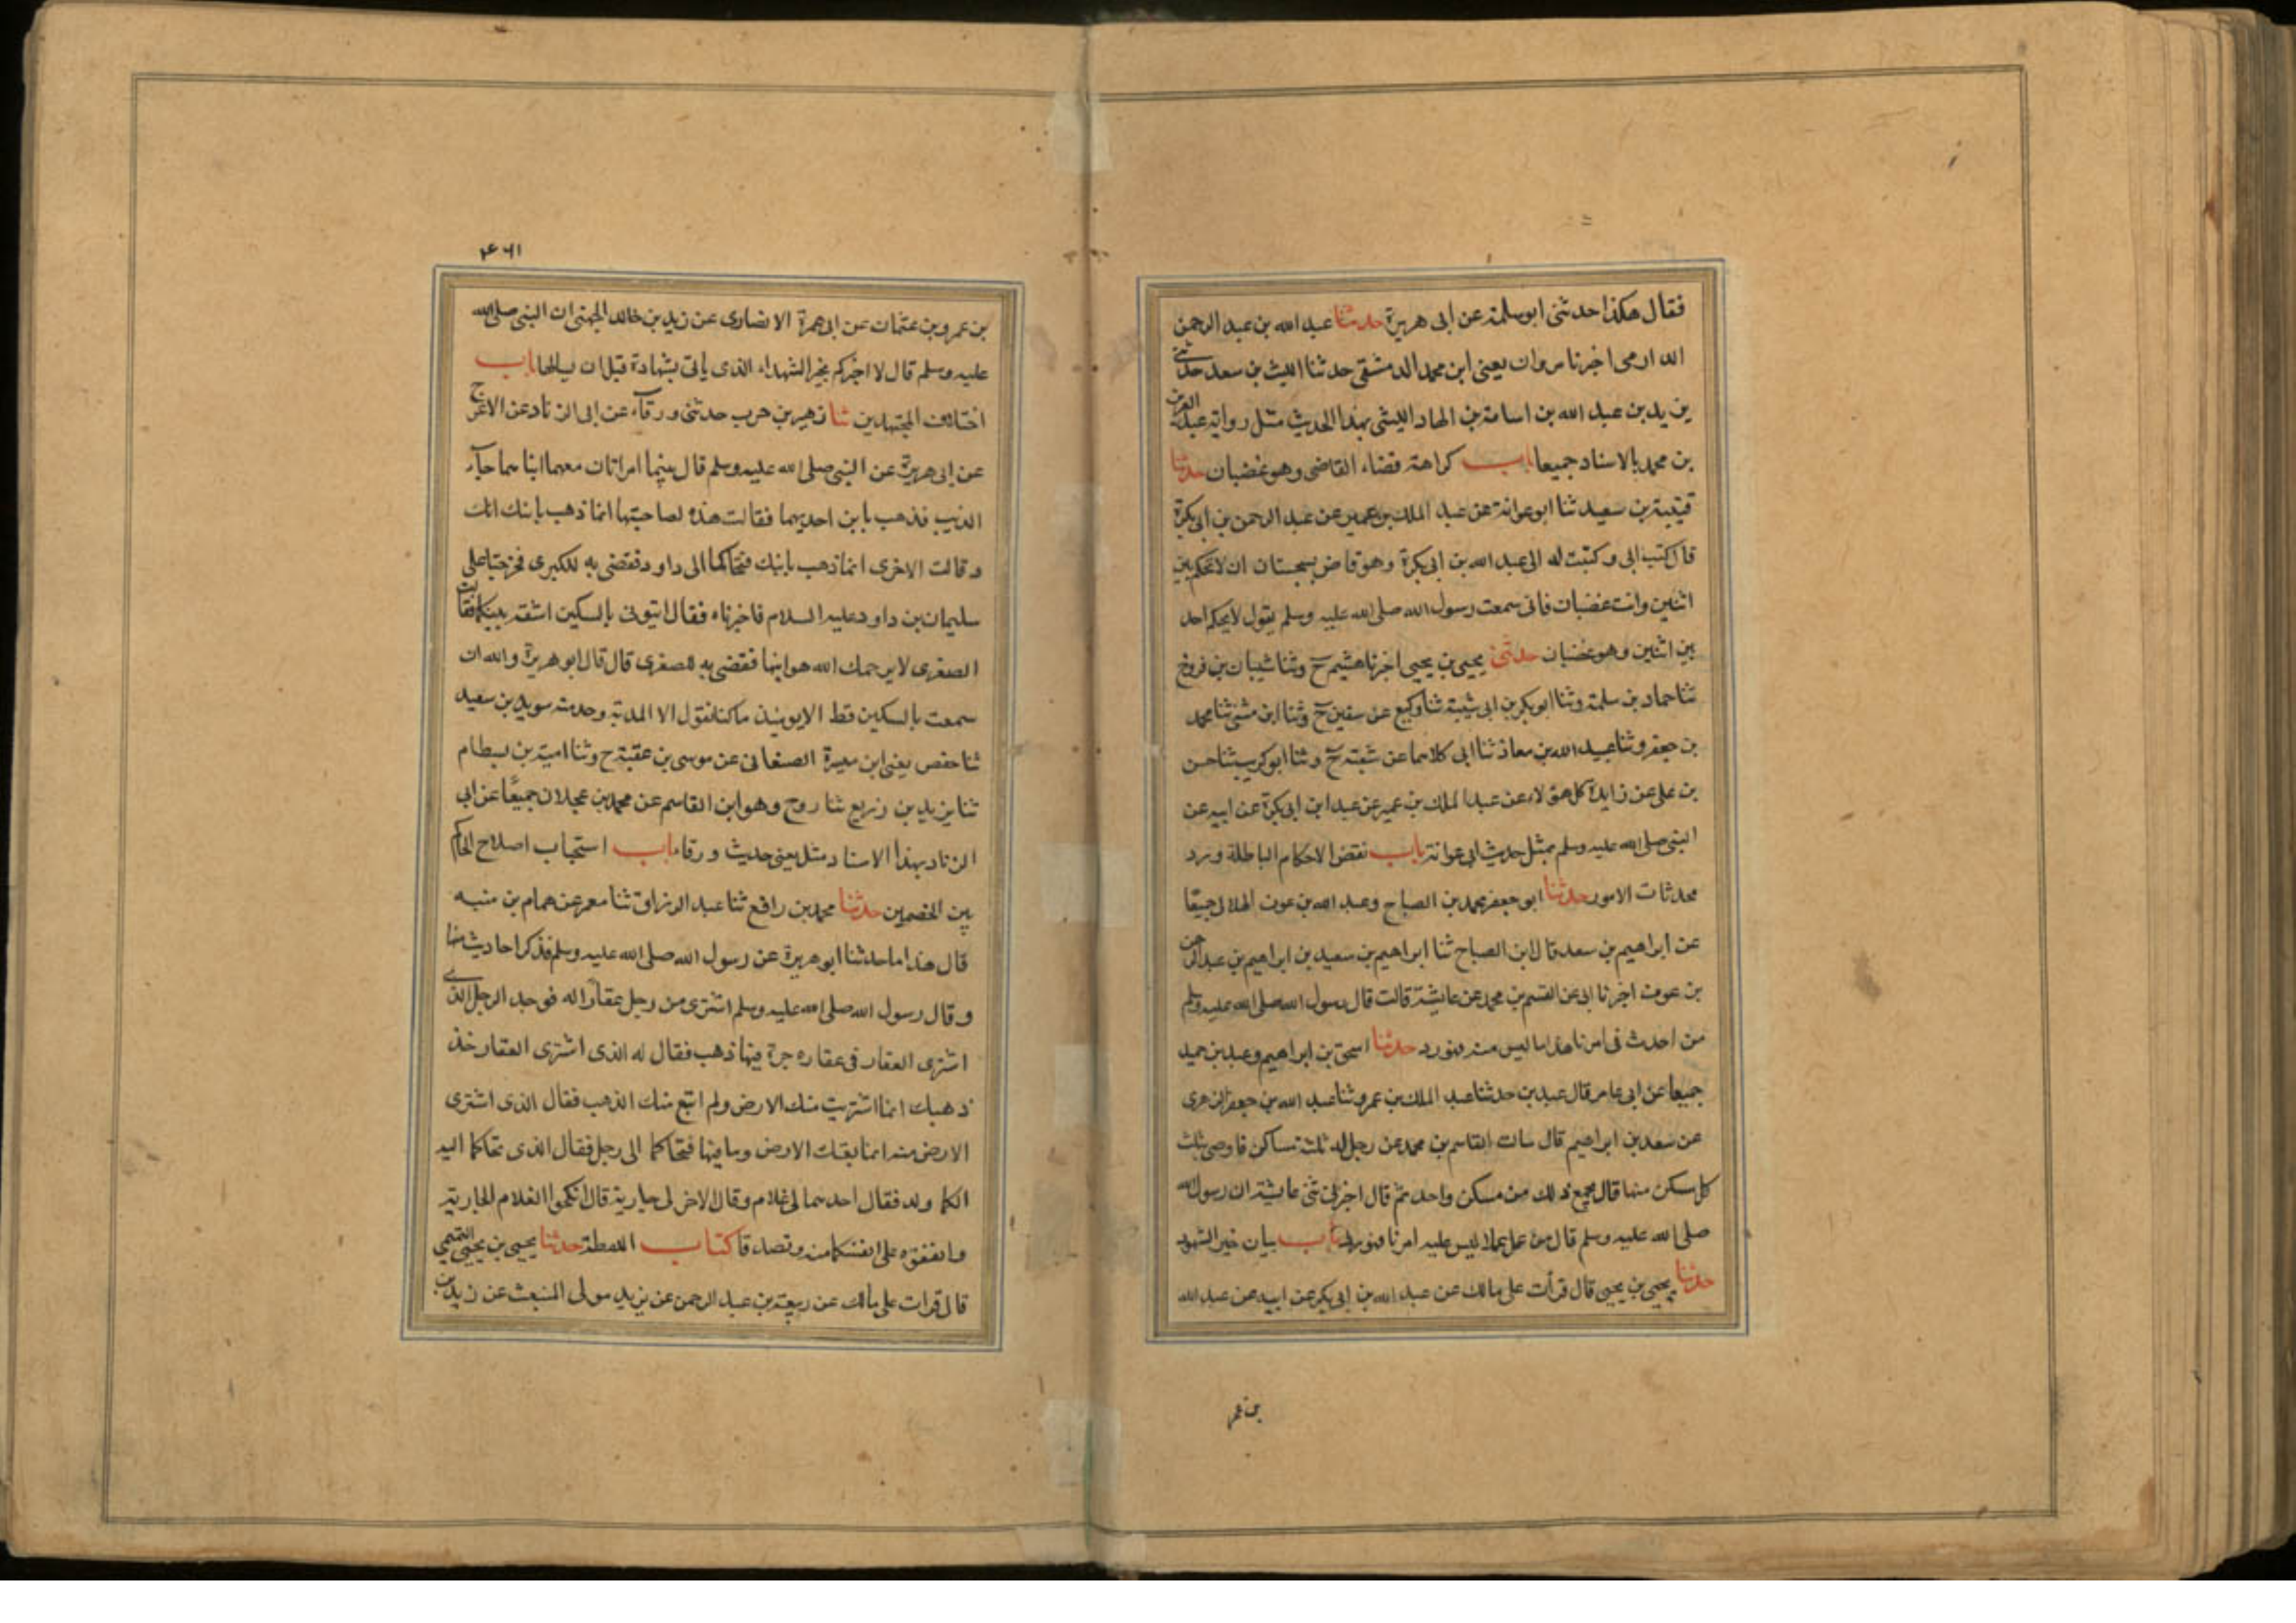 فقال هكذا حدثنى ابو سلمة عن ابى هريرة حدثنا عبد الله بن عبد الرحمن
الدارمى اخبرنا مروان يعنى ابن محمد الدمشقى حدثنا الليث بن سعد حدثنى
يزيد بن عبد الله بن اسامة بن الهاد الليثى بهذا الحديث مثل رواية عبد العزيز
بن محمد بالاسناد جميعا باب كراهة قضاء القاضى وهو غضبان حدثنا
قتيبة بن سعيد ثنا ابو عوانة عن عبد الملك بن عمير عن عبد الرحمن بن ابى بكرة
قال كتب ابى وكتبت له الى عبد الله بن ابى بكرة وهو قاض بسجستان ان لا تحكم بين
اثنين وانت غضبان فانى سمعت رسول الله صلى الله عليه وسلم يقول لا يحكم احد
بين اثنين وهو غضبان حدثنى يحيى بن يحيى اخبرنا هشيم ح وثنا شيبان بن فروخ
ثنا حماد بن سلمة وثنا ابو بكر بن ابى شيبة ثنا وكيع عن سفين ح وثنا ابن مثنى ثنا محمد
بن جعفر وثنا عبيد الله بن معاذ ثنا ابى كلاهما عن شعبة ح وثنا ابو كريب ثنا حسن
بن على عن زايدة كل هولاء عن عبد الملك بن عمير عن عبد ابن ابى بكرة عن ابيه عن
النبى صلى الله عليه وسلم بمثل حديث ابى عوانة باب نقض الاحكام الباطلة ورد
محدثات الامور حدثنا ابو جعفر محمد بن الصباح وعبد الله بن عون الهلالى جميعا
عن ابراهيم بن سعد قال ابن الصباح ثنا ابراهيم بن سعيد بن ابراهيم بن عبد الرحمن
بن عوف اخبرنا ابى عن القسم بن محمد عن عايشة قالت قال رسول الله صلى الله عليه وسلم
من احدث فى امرنا هذا ما ليس منه فهو رد حدثنا اسحق بن ابراهيم وعبد بن حميد
جميعا عن ابى عامر قال عبد بن حدثنا عبد الملك بن عمرو ثنا عبد الله بن جعفر الزهرى
عن سعد بن ابراهيم قال سات القاسم بن محمد عن رجل له ثلثة مساكن فاوصى بثلث
كل مسكن منها قال يجمع ذلك من مسكن واحد ثم قال اخبرتنى عايشة ان رسول الله
صلى الله عليه وسلم قال من عمل عملا ليس عليه امرنا فهو رد باب بيان خير الشهود
حدثنا يحيى بن يحيى قال قرأت على مالك عن عبد الله بن ابى بكر عن ابيه عن عبد الله
بن عمر
٤٦١
بن عمرو بن عثمان عن ابى عمرة الانصارى عن زيد بن خالد الجهنى ان النبى صلى الله
عليه وسلم قال لا اخبركم بخير الشهداء الذى ياتى بشهادة قبل ان يسالها باب
اختلاف المجتهدين ثنا زهير بن حرب حدثنى ورقاء عن ابى الزناد عن الاعرج
عن ابى هريرة عن النبى صلى الله عليه وسلم قال بينما امراتان معهما ابناهما جاء
الذيب فذهب بابن احديهما فقالت هذه لصاحبتها انما ذهب بابنك انت
وقالت الاخرى انما ذهب بابنك فتحاكما الى داود فقضى به للكبرى فخرجتا على
سليمان بن داود عليه السلام فاخبرتاه فقال ايتونى بالسكين اشقه بينكما فقالت
الصغرى لا يرحمك الله هو ابنها فقضى به للصغرى قال قال ابو هريرة والله ان
سمعت بالسكين قط الا يومئذ ما كنا نقول الا المدية وحدثنه سويد بن سعيد
ثنا حفص يعنى ابن ميسرة الصنعانى عن موسى بن عقبة ح وثنا امية بن بسطام
ثنا يزيد بن زريع ثنا روح وهو ابن القاسم عن محمد بن عجلان جميعًا عن ابى
الزناد بهذا الاسناد مثل يعنى حديث ورقاء باب استحباب اصلاح الحاكم
بين الخصمين حدثنا محمد بن رافع ثنا عبد الرزاق ثنا معمر عن همام بن منبه
قال هذا ما حدثنا ابو هريرة عن رسول الله صلى الله عليه وسلم فذكر احاديث منها
وقال رسول الله صلى الله عليه وسلم اشترى من رجل عقارًا له فوجد الرجل الذى
اشترى العقار فى عقاره جرة فيها ذهب فقال له الذى اشترى العقار خذ
ذهبك انما اشتريت منك الارض ولم ابتع منك الذهب فقال الذى اشترى
الارض منه انما بعتك الارض وما فيها فتحاكما الى رجل فقال الذى تحاكما اليه
الكما ولد فقال احدهما لى غلام وقال الاخر لى جارية قال انكحوا الغلام الجارية
وانفقوه على انفسكما منه وتصدقا كتاب اللقطة حدثنا يحيى بن يحيى التميمى
قال قرات على مالك عن ربيعة بن عبد الرحمن عن يزيد مولى المنبعث عن زيد بن